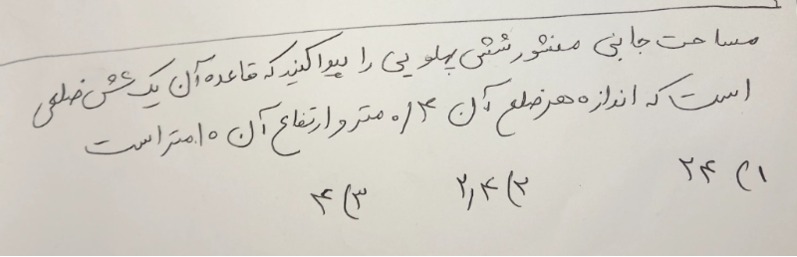 مساحت جانبی منشور شش پهلویی را پیدا کنید که قاعده آن یک شش ضلعی
است که اندازه هر ضلع آن ۰/۴ متر و ارتفاع آن ۱۰ متر است
۱) ۲۴ ۲) ۲,۴ ۳) ۴